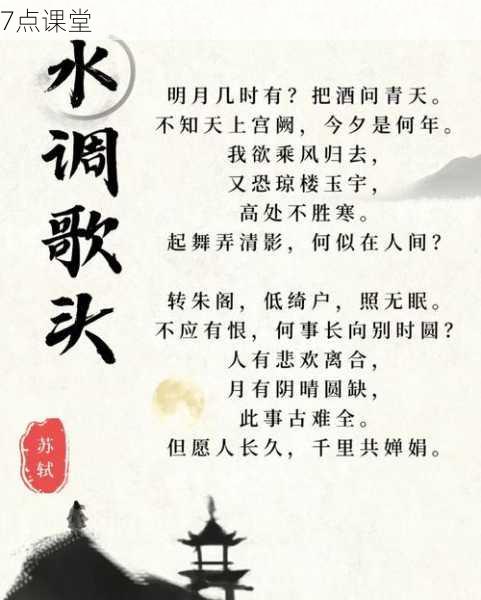 7点课堂
水调歌头
明月几时有？把酒问青天。
不知天上宫阙，今夕是何年。
我欲乘风归去，
又恐琼楼玉宇，
高处不胜寒。
起舞弄清影，何似在人间？
转朱阁，低绮户，照无眠。
不应有恨，何事长向别时圆？
人有悲欢离合，
月有阴晴圆缺，
此事古难全。
但愿人长久，千里共婵娟。
苏轼